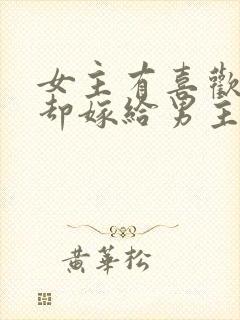 女主有喜歡
却嫁給男主
黃華松